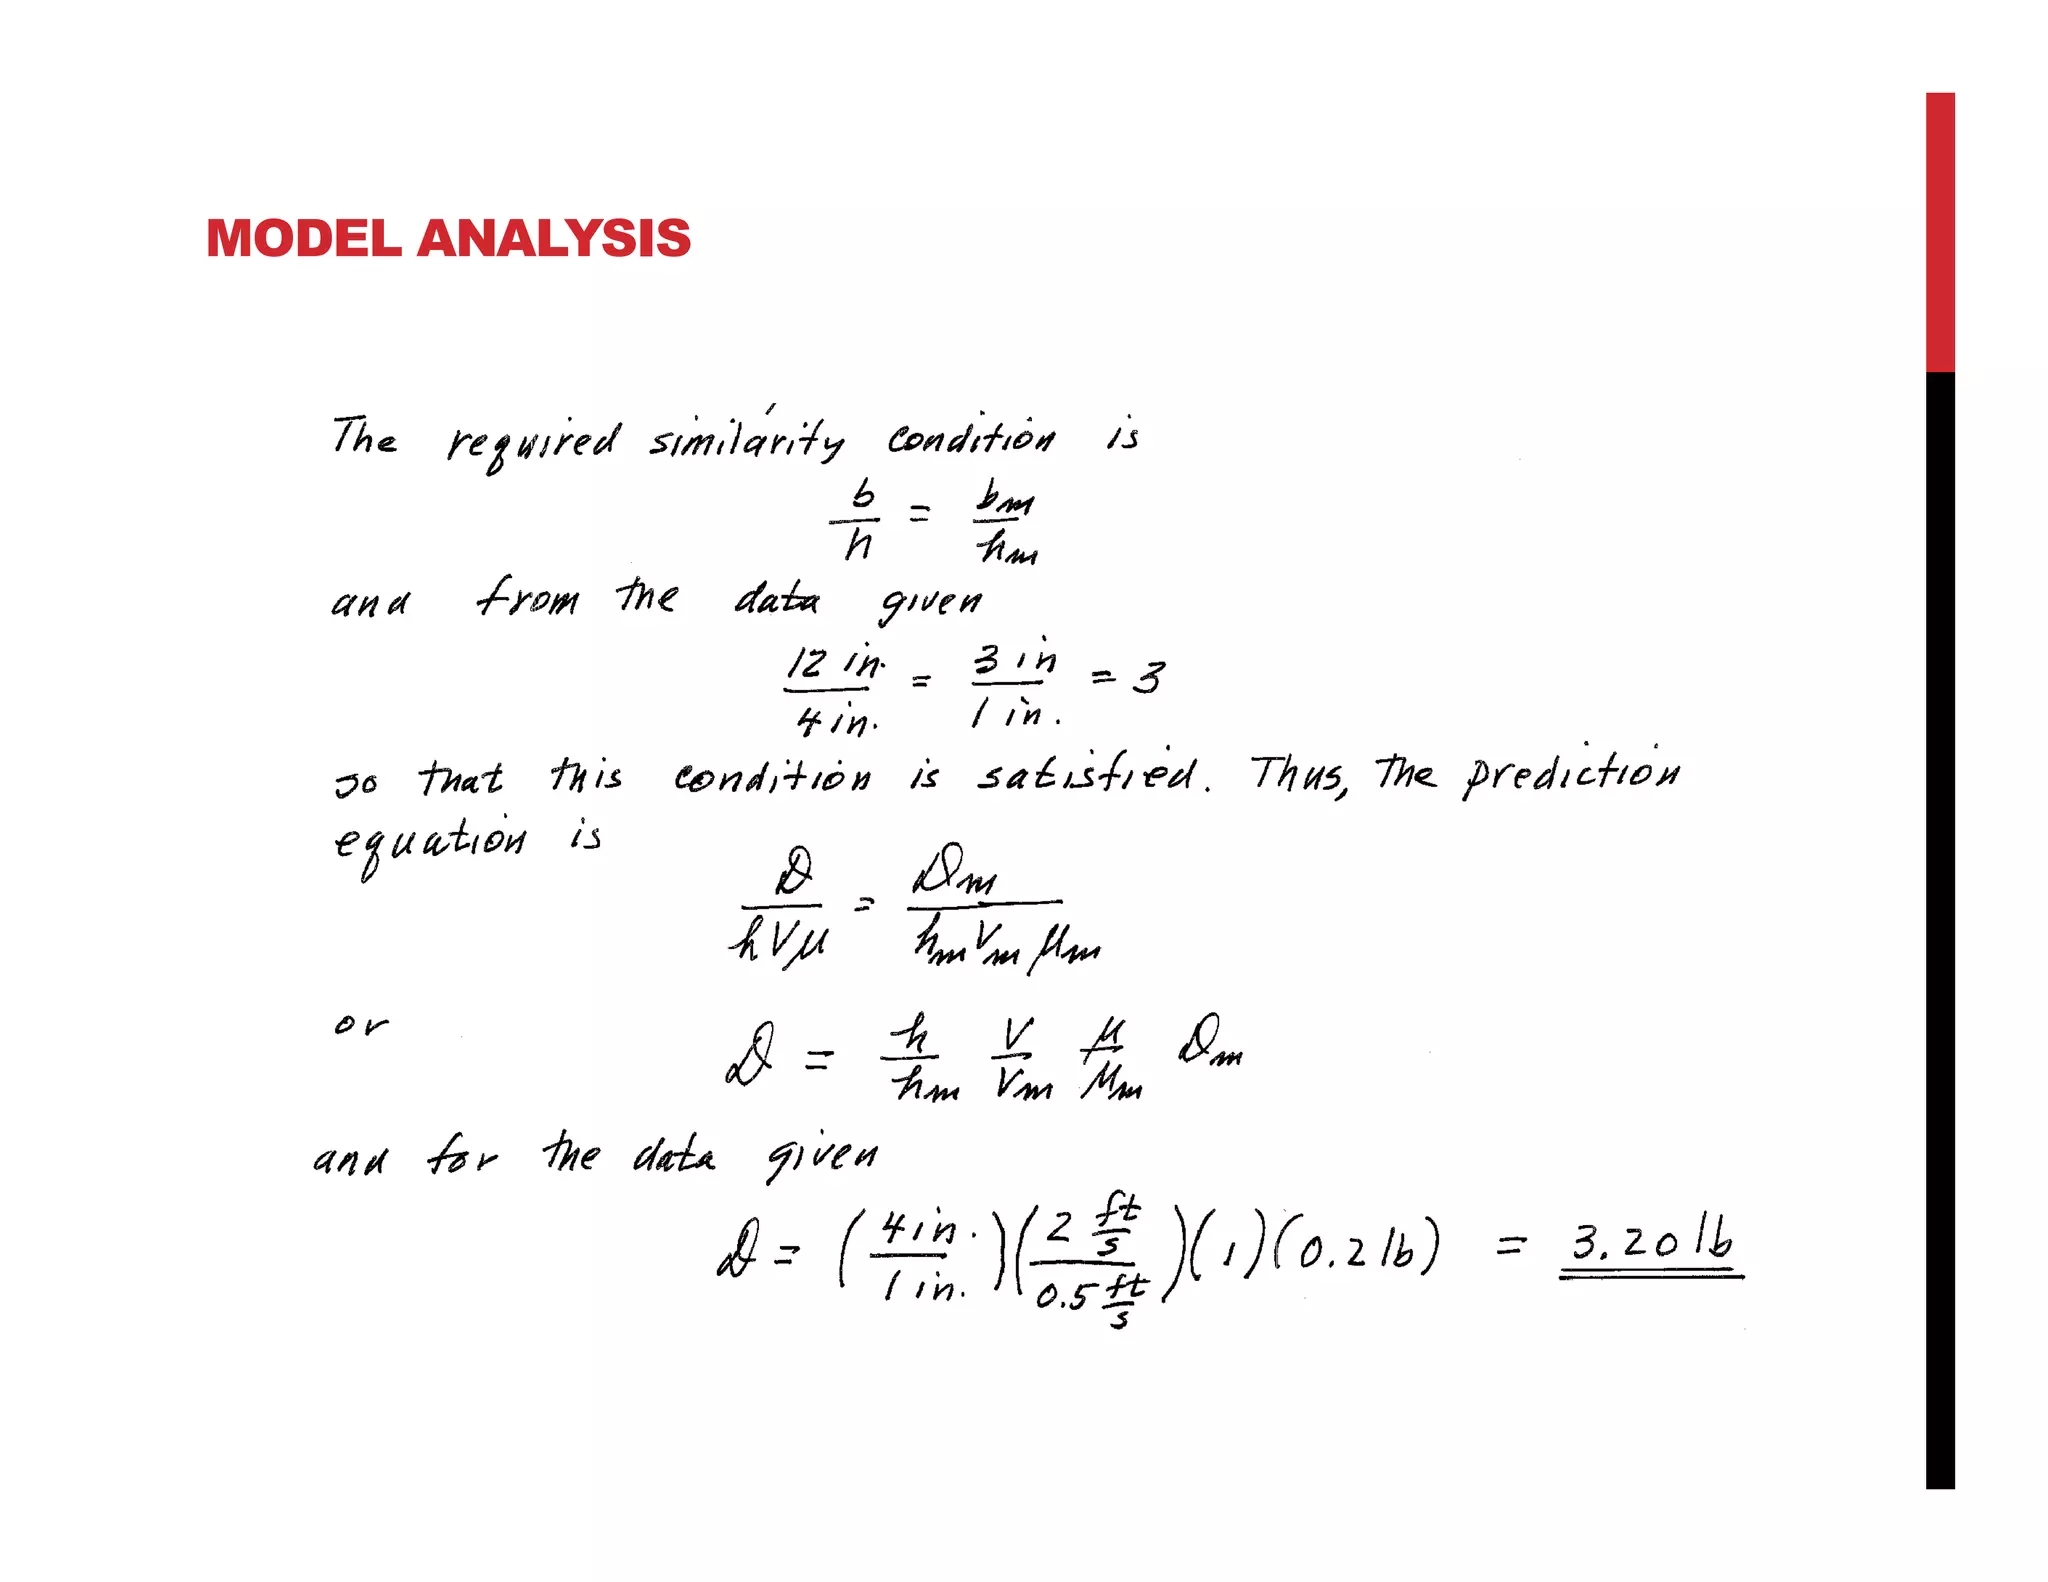 MODEL ANALYSIS
The required similarity condition is
b/h = bm/hm
and from the data given
12 in./4 in. = 3 in/1 in. = 3
so that this condition is satisfied. Thus, the prediction
equation is
𝒟/hVμ = 𝒟m/hmVmμm
or
𝒟 = h/hm V/Vm μ/μm 𝒟m
and for the data given
𝒟 = (4 in./1 in.)(2 ft/s/0.5 ft/s)(1)(0.2 lb) = 3.20 lb